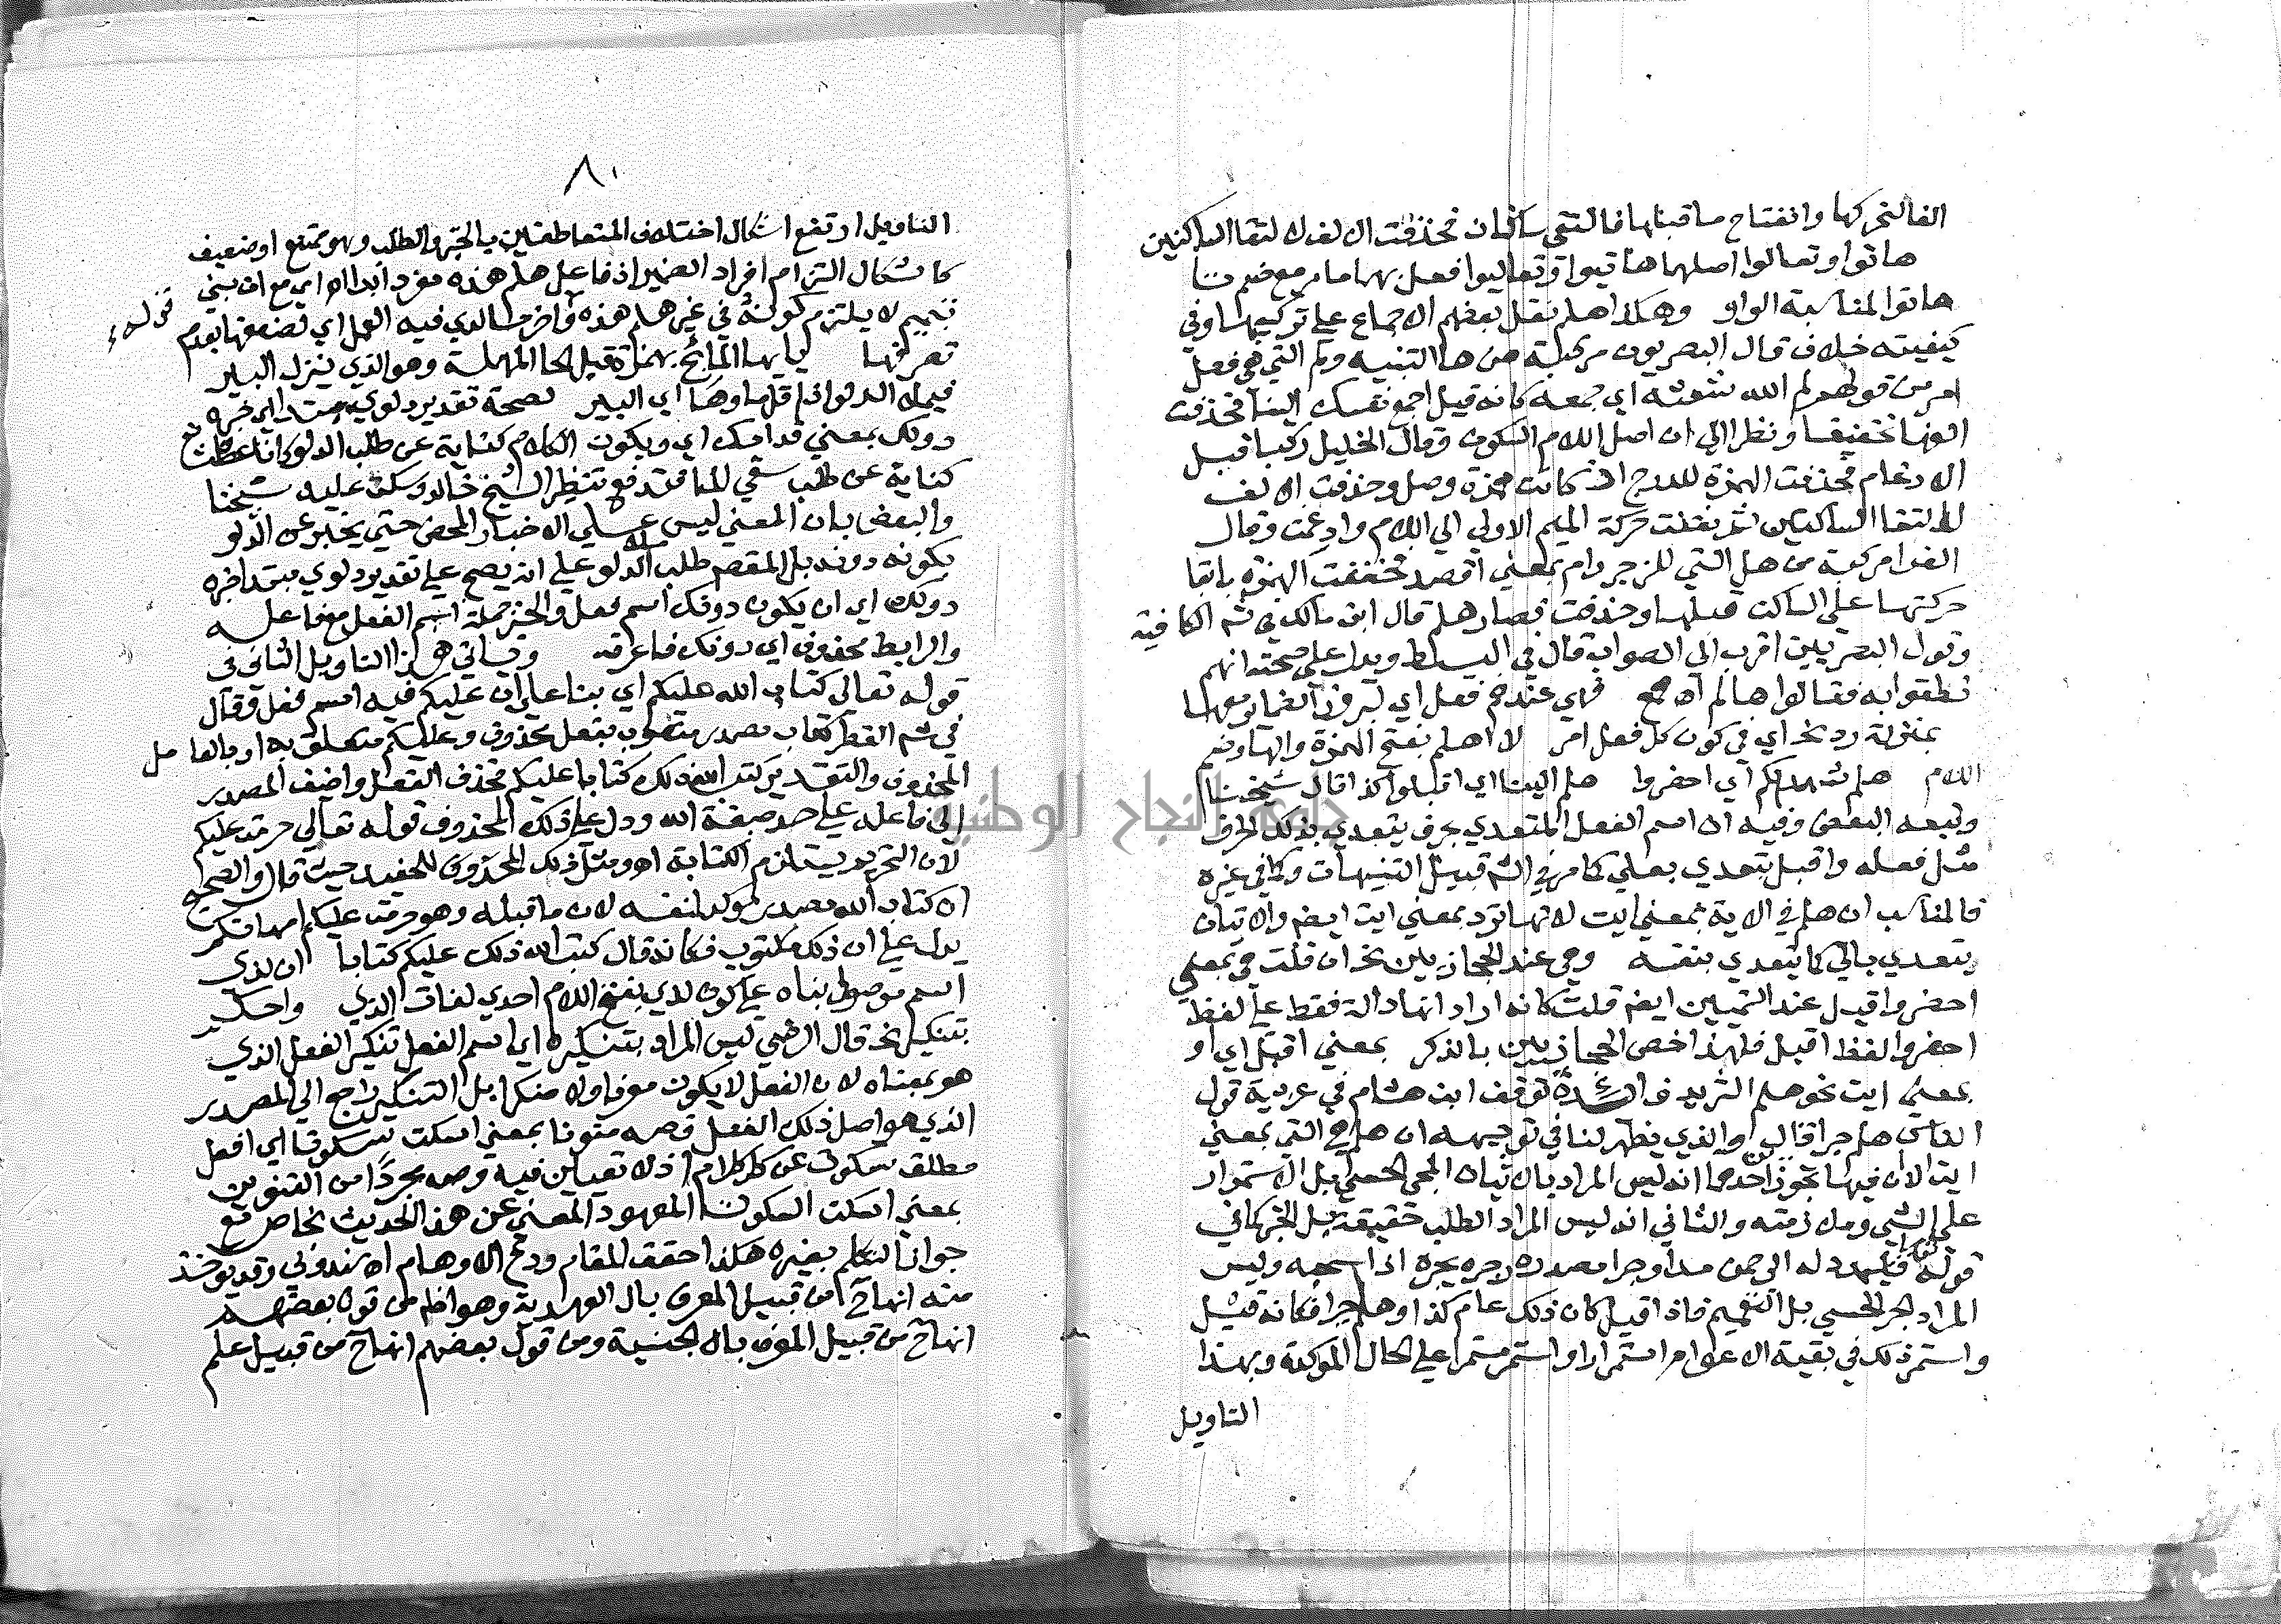 الفا لتحركها وانفتاح ما قبلها فالتقى ساكنان فحذفت الالف لالتقا الساكنين
هاتوا وتعالوا اصلهما هاتيوا وتعاليوا فعل بهما ما مر مع ضم تا
هاتوا لمناسبة الواو وهكذا هلم نقل بعضهم الاجماع على تركيبها وفي
كيفيته خلاف قال البصريون مركبة من ها التنبيه ولم التي هي فعل
امر من قولهم لم الله شعثه اي جمعه كانه قيل اجمع نفسك الينا فحذفت
الفها تخفيفا ونظرا الى ان اصل اللام السكون وقال الخليل ركبا قبل
الادغام فحذفت الهمزة للدرج اذ كانت همزة وصل وحذفت الالف
لالتقا الساكنين ثم نقلت حركة الميم الاولى الى اللام وادغمت وقال
الفرا مركبة من هل التي للزجر وام بمعنى اقصد فخففت الهمزة بالقا
حركتها على الساكن قبلها وحذفت فصار هلم قال ابن مالك في شم الكافية
وقول البصريين اقرب الى الصواب قال في البسيط ويدل على صحته انهم
نطقوا به فقالوا ها لم اه همع فهي عندهم فعل اي لبروز الضماير معها
بمنزلة رد نحو اي في كون كل فعل امر لا اهلم بفتح الهمزة والها وضم
اللام هلم شهداءكم اي احضروا هلم الينا اي اقبلوا كذا قال شيخنا
وتبعه البعض وفيه ان اسم الفعل المتعدي بحرف يتعدي بذلك الحرف
مثل فعله واقبل يتعدي بعلي كما مر في الشم قبيل التنبيهات وكما في غيره
فالمناسب ان هلم في الاية بمعنى ايت لانها ترد بمعني ايت ايضم والاتيان
يتعدي بالي كما يتعدي بنفسه وهي عند الحجازيين نحو ان قلت هي بمعني
احضر واقبل عند التميميين ايضم قلت كانه اراد انها دالة فقط على لفظ
احضر والفظ اقبل فلهذا خص الحجازيين بالذكر بمعني اقبل اي او
بمعنى ايت نحو هلم الثريد فائدة توقف ابن هشام في عربية قول
الناس هلم جرا قال والذي يظهر لنا في توجيهه ان هلم هي التي بمعني
ايت الا ان فيها تجوزين احدهما انه ليس المراد بالاتيان المجي الحسي بل الاستمرار
على الشي وملازمته والثاني انه ليس المراد الطلب حقيقة بل الخبر كما في
قوله تعالى فليمدد له الرحمن مدا وجرا مصدره جره يجره اذا سحبه وليس
المراد الجر الحسي بل التعميم فاذا قيل كان ذلك عام كذا وهلم جرا فكانه قيل
واستمر ذلك في بقية الاعوام استمرارا او استمر مستمرا على الحال الموكدة وبهذا
التاويل
٨٠
التاويل ارتفع اشكال اختلاف المتعاطفين بالخبر والطلب وهو ممتنع او ضعيف
كاشكال التزام افراد الضمير اذ فاعل هلم هذه مفرد ابدا اه اي مع ان بني
تميم لا يلتزمون في غير هلم هذه واخر ما الذي فيه العمل اي لضعفها بعدم
قوله
تصرفها يا ايها المائح بهمزة قبل الحا المهملة وهو الذي ينزل البير
فيملا الدلو اذا قل ماوها اي البير لصحة تقدير دلوي مبتدا اي خبره
دونك بمعني قدامك اي ويكون الكلام كناية عن طلب الدلو كانا عطشان
كناية عن طلب سقي الما فقد دفع تنظير الشيخ خالد وسكت عليه شيخنا
والبعض بان المعني ليس على الاخبار المحض حتي يخبر عن الدلو
بكونه دونه بل المقصم طلب ملا الدلو على انه يصح على تقدير دلوي مبتدا خبره
دونك اي ان يكون دونك اسم فعل والخبر جملة اسم الفعل مع فاعله
والرابط محذوف اي دونك فاعرفه وياتي هذا التاويل الثاني في
قوله تعالى كتاب الله عليكم اي بنا على ان عليكم فيه اسم فعل وقال
في شم القطر كتاب مصدر منصوب بفعل محذوف وعليكم متعلق به او بالعامل
المحذوف والتقدير كتب الله ذلك كتابا عليكم فحذف الفعل واضيف المصدر
الى فاعله على حد صبغة الله ودل على ذلك المحذوف قوله تعالى حرمت عليكم
لان التحريم يستلزم الكتابة اه ومثل ذلك المحذوف للحفيد حيث قال والصحيح
ان كتاب الله مصدر موكد لنفسه لان ما قبله وهو حرمت عليكم امهاتكم
يدل على ان ذلك مكتوب فكانه قال كتب الله ذلك عليكم كتابا ان لذي
اسم موصول بناه على كون لذي بفتح اللام احدي لغات الذي واحكم
بتنكير نحو قال الرضي ليس المراد بتنكيره اي اسم الفعل تنكير الفعل الذي
هو بمعناه لان الفعل لا يكون معرفا ولا منكرا بل التنكير راجع الى المصدر
الذي هو اصل ذلك الفعل فصه منونا بمعنى اسكت سكوتا اي افعل
مطلق سكوت عن كل كلام اذ لا تعيين فيه وصه مجردا من التنوين
بمعني اسكت السكوت المعهود المعني عن هذا الحديث الخاص مع
جواز التكلم بغيره هكذا حقق المقام ودع الاوهام اه دندوني وقد يوخذ
منه انها ح من قبيل المعرف بال العهدية وهو اظهر من قول بعضهم
انها ح من قبيل المعرف بال الجنسية ومن قول بعضهم انها ح من قبيل علم